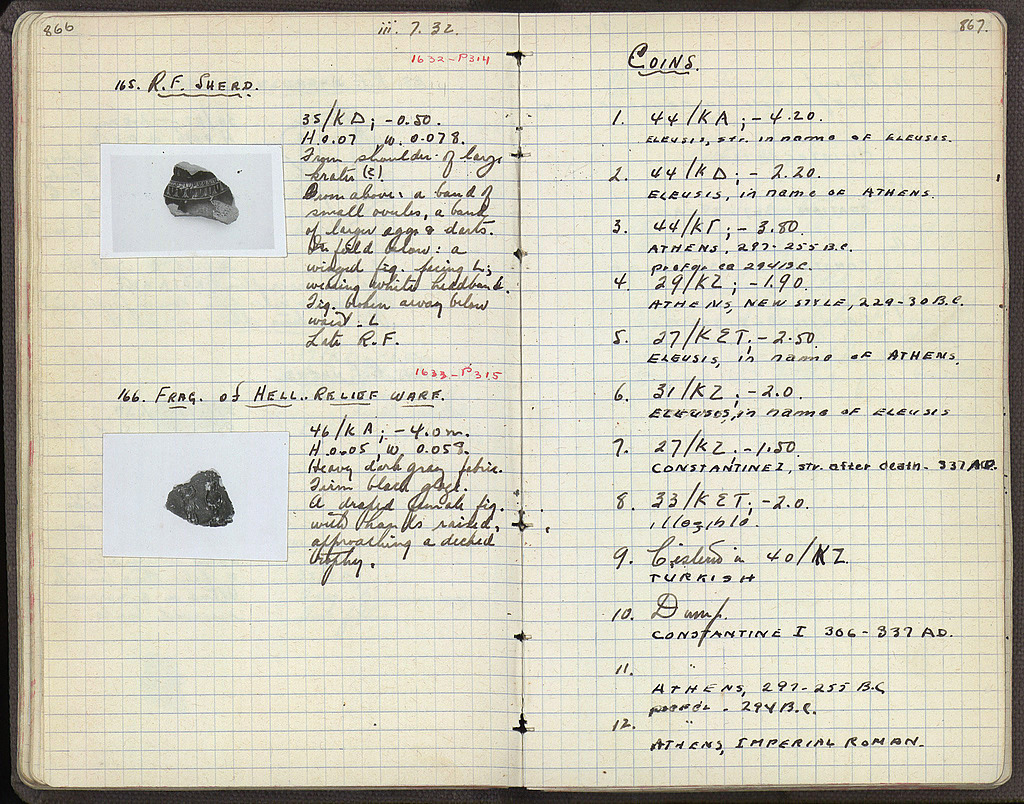 866
iii. 7. 32.
1632 - P314
165. R.F. SHERD.
35/ΚΔ; -0.50.
H. 0.07 W. 0.078.
From shoulder of large
krater (?).
From above: a band of
small ovules, a band
of larger eggs & darts.
On field below: a
winged fig. facing L;
wearing white headband.
Fig. broken away below
waist. L
Late R.F.
1633 - P315
166. FRAG. of HELL. RELIEF WARE.
46/ΚΑ; -4.0 m.
H. 0.05, W. 0.058.
Heavy dark gray fabric.
Firm black glaze.
A draped female fig.
with hands raised,
approaching a decked
trophy.
867.
COINS.
1. 44/ΚΑ; -4.20.
ELEUSIS, str. in name OF ELEUSIS.
2. 44/ΚΔ; -2.20.
ELEUSIS, in name OF ATHENS.
3. 44/ΚΓ; -3.80.
ATHENS, 297-255 B.C.
ca 294 B.C.
4. 29/ΚΖ; -1.90.
ATHENS, NEW STYLE, 229-30 B.C.
5. 27/ΚΣΤ; -2.50.
ELEUSIS, in name OF ATHENS.
6. 31/ΚΖ; -2.0.
in name OF ELEUSIS
7. 27/ΚΖ. -1.50
CONSTANTINE I, str. after death - 337 AD.
8. 33/ΚΣΤ; -2.0.
illegible.
9. Cistern in 40/ΚΖ.
TURKISH
10. Dump.
CONSTANTINE I 306-337 AD.
11. "
ATHENS, 297-255 B.C.
- 294 B.C.
12. "
ATHENS, IMPERIAL ROMAN.